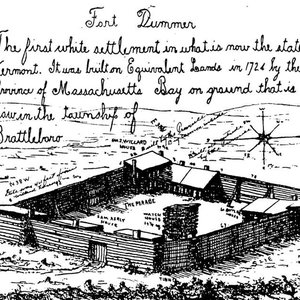 Fort Dummer
The first white settlement in what is now the stat
Vermont. It was built on Equivalent Lands in 1724 by the
rovince of Massachusetts Bay on ground that is
now in the township of
Brattleboro
WILLARD
HOUSE
THE PARADE
HOUSE